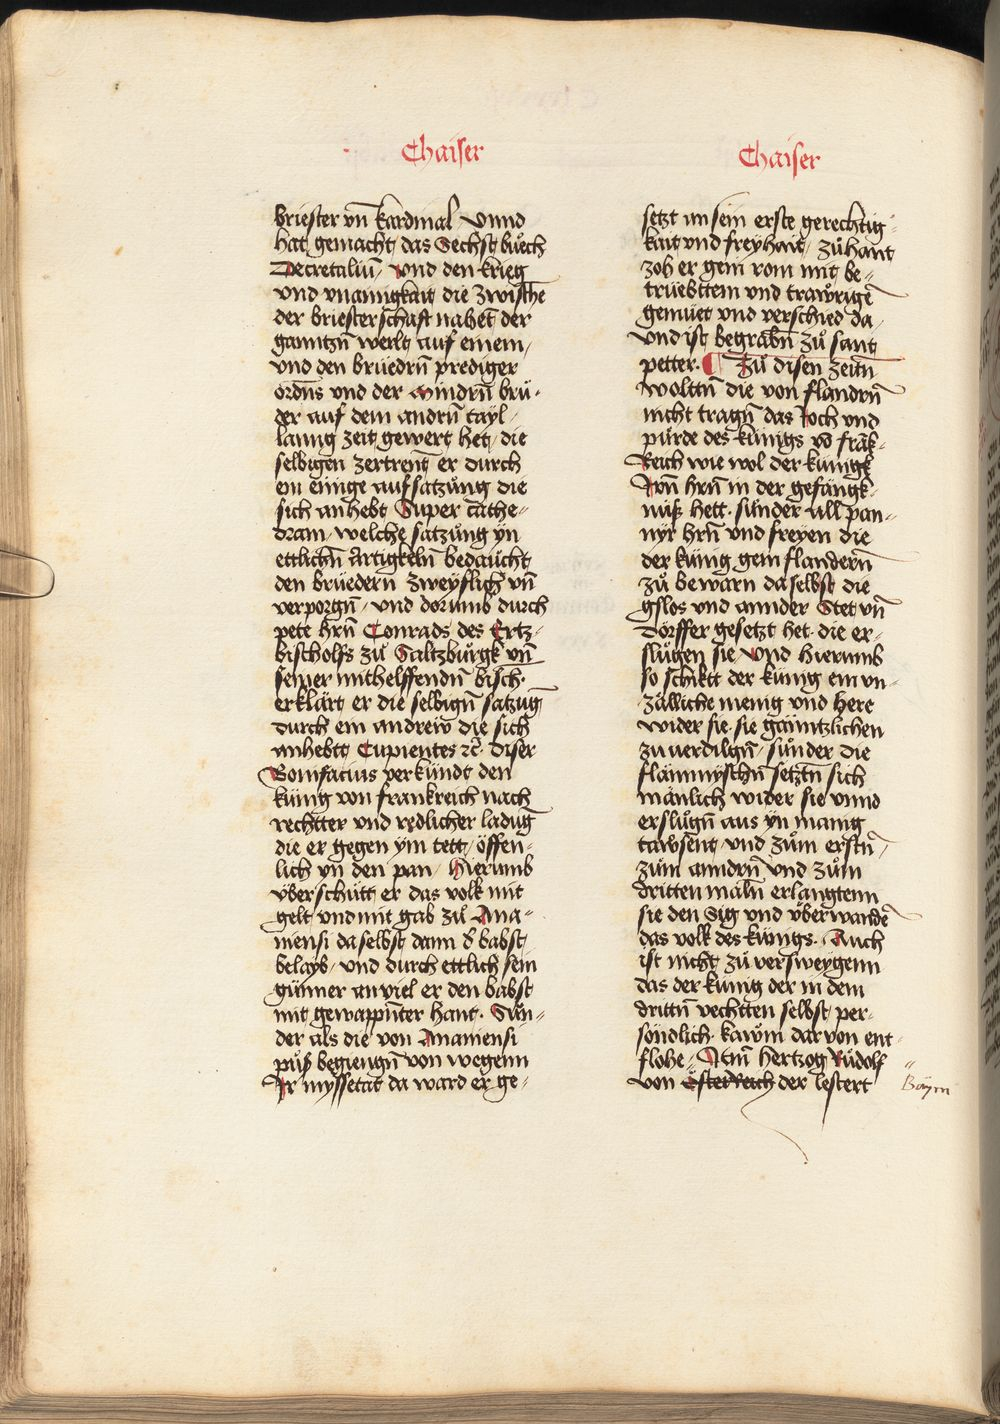 Chaiser
briester vn̄ kardinal Vnnd
hat gemacht das Sechst bůech
Decretaliū / vnd den krieg
vnd vnainigkait die zwischē
der briesterschaft nahet der
ganntzn̄ werlt auf einem /
vnd den brüedrn̄ prediger
ordn̄s vnd der Mindrn̄ brü-
der auf dem andrn̄ tayl /
lanng zeit gewert het / die
selbigen zertrent er durch
ein einige aufsatzůng die
sich anhebt Super cathe=
dram / welche satzůng yn
ettlichn̄ Artigkeln̄ bedaůcht
den brüedern zweyflich vn̄
verporgn̄ / vnd dorumb durch
pete hrn̄ Conrads des Ertz-
bischolfs zů Saltzburgk vn̄
seiner mithelffendn̄ bisch·
erklärt er die selbign̄ satzuḡ
durch ein andrew die sich
anhebtt Cupientes ꝛc̄· diser
Bonifacius verkündt den
künig von frankreich nach
rechtter vnd redlicher laduḡ
die er gegen ym tett / öffen-
lich yn den pan / Hierumb
vberschütt er das volk mit
gelt vnd mit gab zů Ana=
niensi daselbst dann d̄ babst
belayb / vnd durch ettlich sein
günner anviel er den babst
mit gewappnter hant · Sůn=
der als die von Ananiensi
půß begiengn̄ von wegenn
Ir myssetat da ward er ge=
Chaiser
setzt in sein erste gerechtig-
kait vnd freyhait / zůhant
zoh er gein rom mit be=
trüebttem vnd trawrigē
gemüet vnd verschied da /
vnd ist begrabn̄ zů sant
petter · ¶ Zů disen zeitn̄
wolttn̄ die von flandrn̄
nicht tragn̄ das Joch vnd
pürde des künigs vō fräk-
Reich wie wol der künigk
Iren̄ hrn̄ in der gefängk-
nüß hett · sůnder all pan-
nyr hrn̄ vnd freyen die
der künig gein flandern̄
zů bewarn daselbst die
gslos vnd annder Stet vn̄
Dörffer gesetzt het · die er=
slůgen sie / vnd hierumb
so schiktt der künig ein vn=
zälliche menig vnd here
wider sie · sie gänntzlichen
zuuerdilgn̄ / sůnder die
flämmyschn̄ setztn̄ sich
mänlich wider sie vnnd
erslůgn̄ aus yn manig
tawsent / vnd zům erstn̄ /
zům anndrn̄ vnd zům
dritten maln̄ erlangtenn
sie den Sig vnd vberwandē
das volk des künigs · Auch
ist nicht zů versweygenn
das der künig der in dem
drittn̄ vechtten selbst per=
söndlich · kawm dar von ent-
flohe / Item̄ hertzog Růdolf
von Österreich der lestert
Bäym